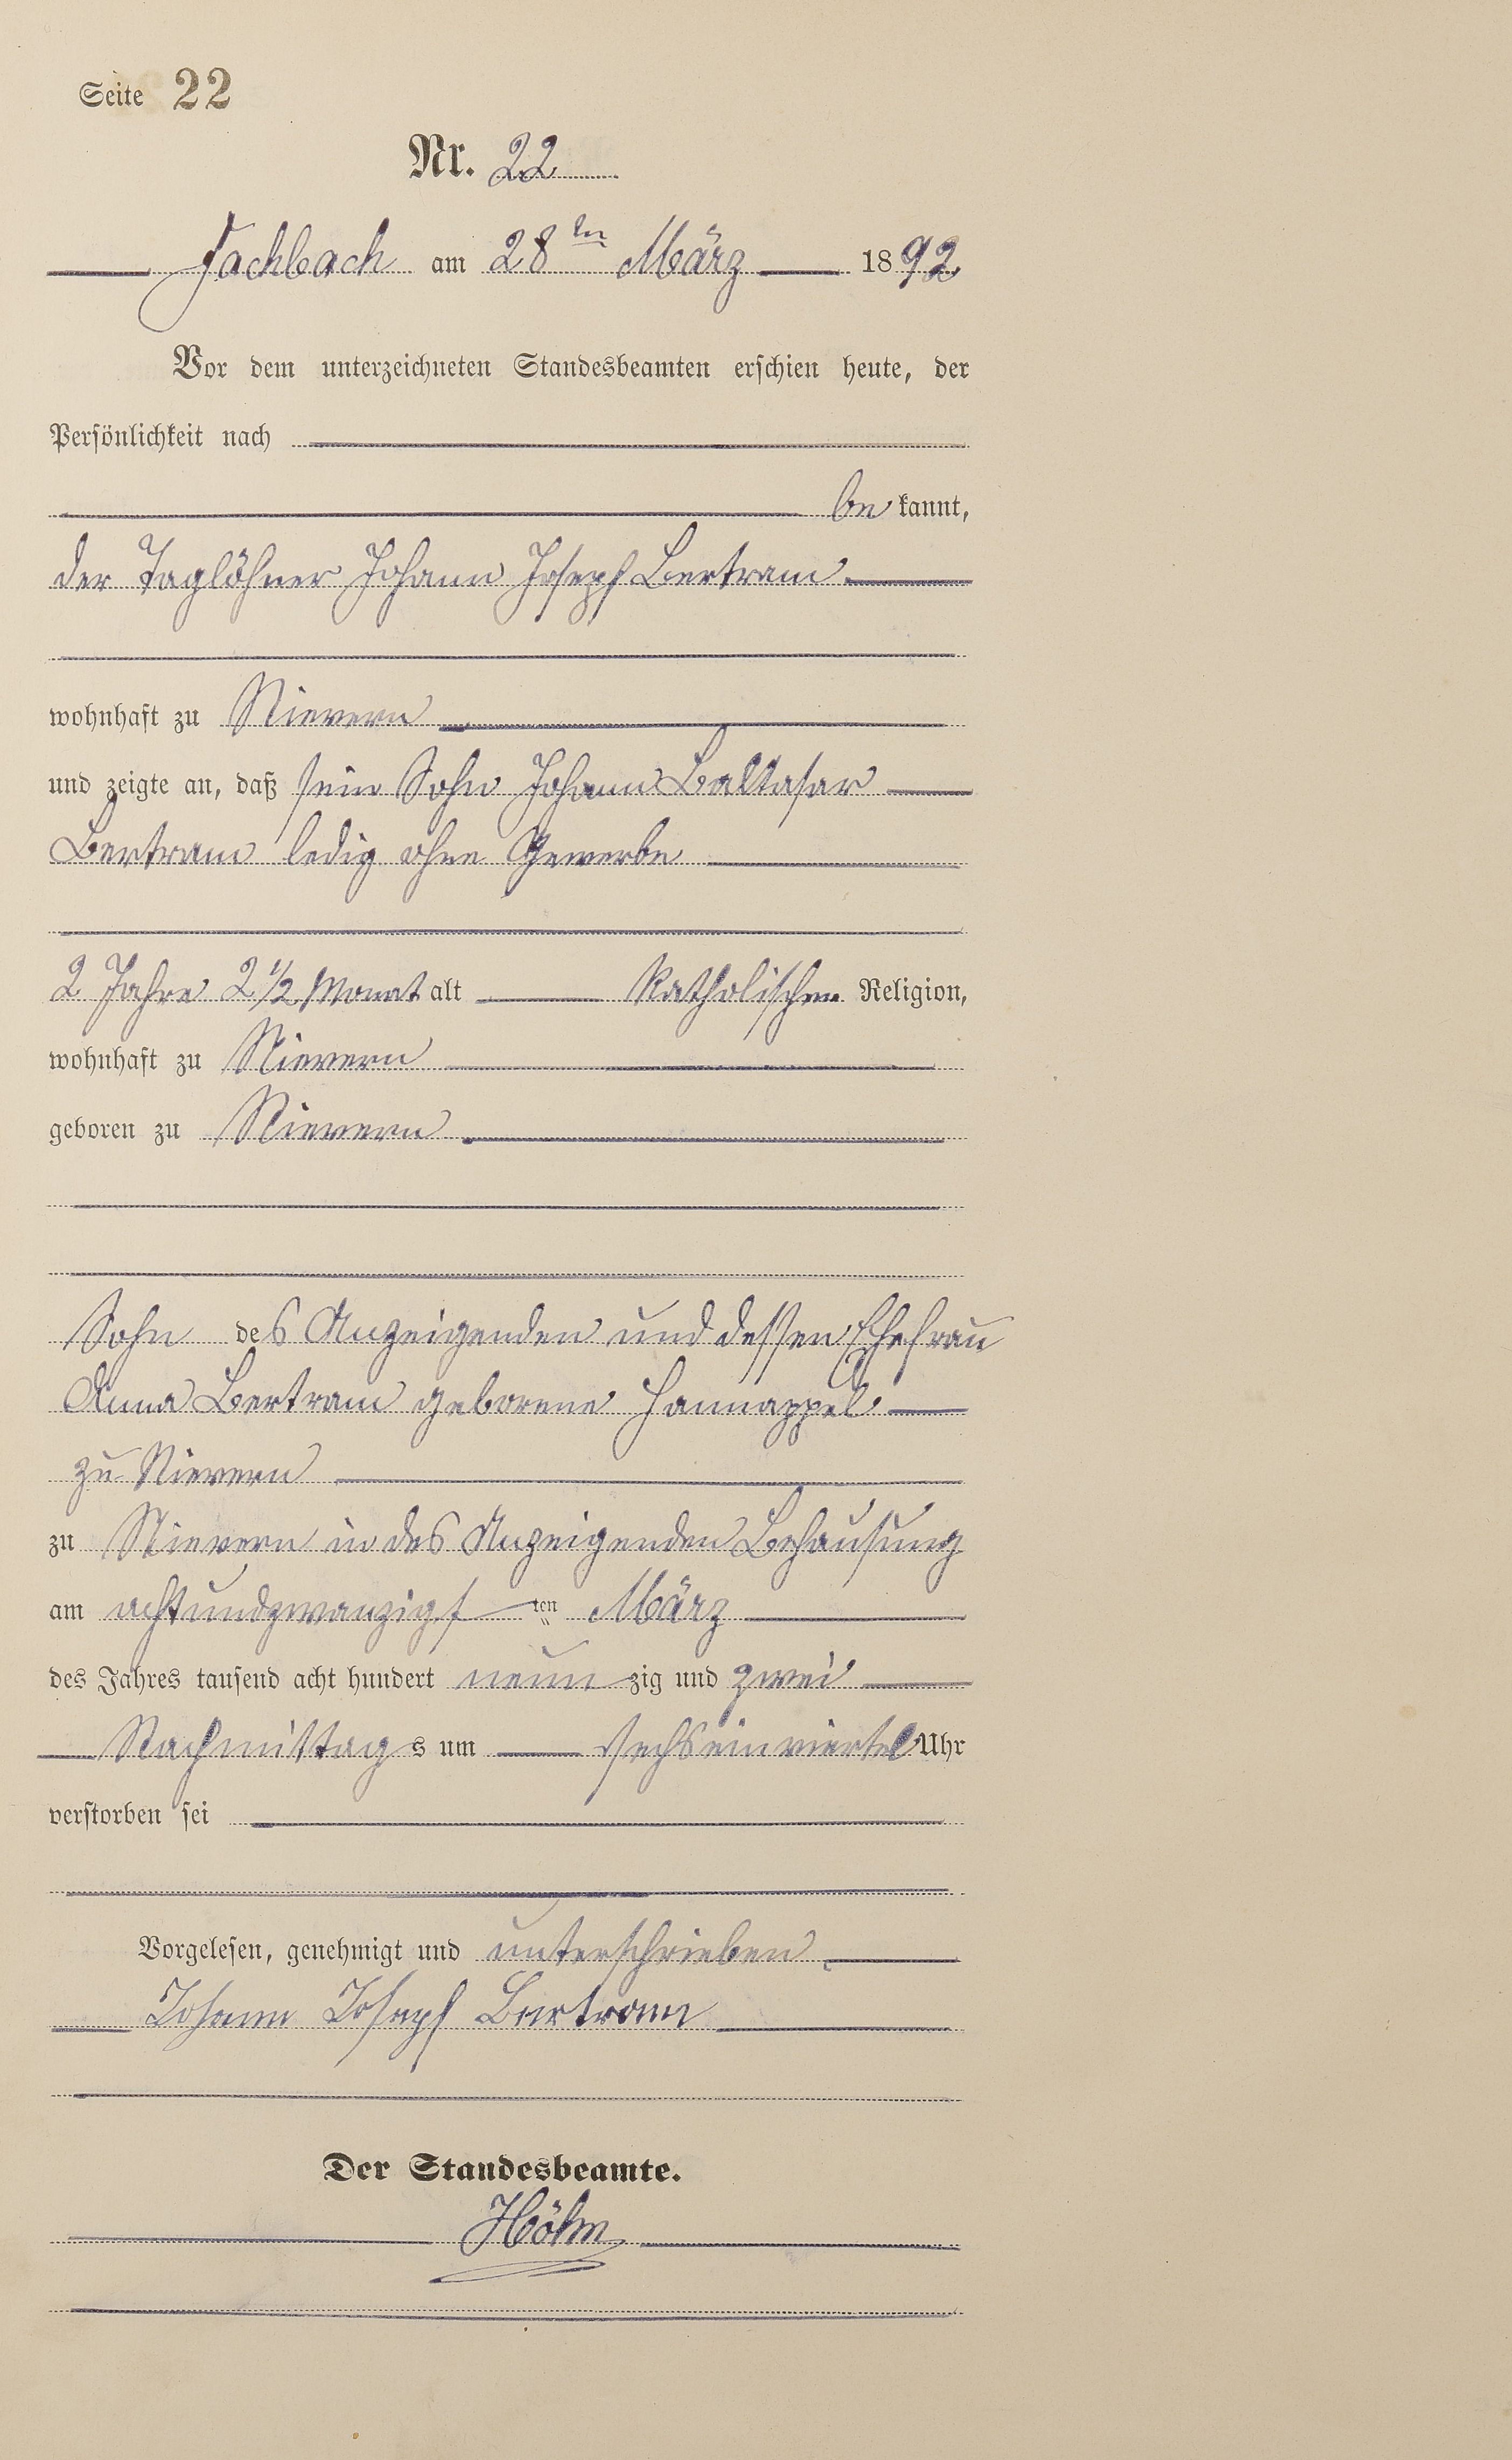 Seite 22
Nr. 22
Fachbach am 28ten März 1892
Vor dem unterzeichneten Standesbeamten erschien heute, der
Persönlichkeit nach
bekannt,
der Taglöhner Johann Joseph Bertram
wohnhaft zu Nievern
und zeigte an, daß sein Sohn Johann Baltasar
Bertram ledig ohne Gewerbe
2 Jahre 2 1/2 Monat alt katholischen Religion,
wohnhaft zu Nievern
geboren zu Nievern
Sohn des Anzeigenden und dessen Ehefrau
Anna Bertram geborene Hannappel
zu Nievern
zu Nievern in des Anzeigenden Behausung
am achtundzwanzigsten März
des Jahres tausend acht hundert neunzig und zwei
Nachmittags um sechseinviertel Uhr
verstorben sei
Vorgelesen, genehmigt und unterschrieben
Johann Joseph Bertram
Der Standesbeamte.